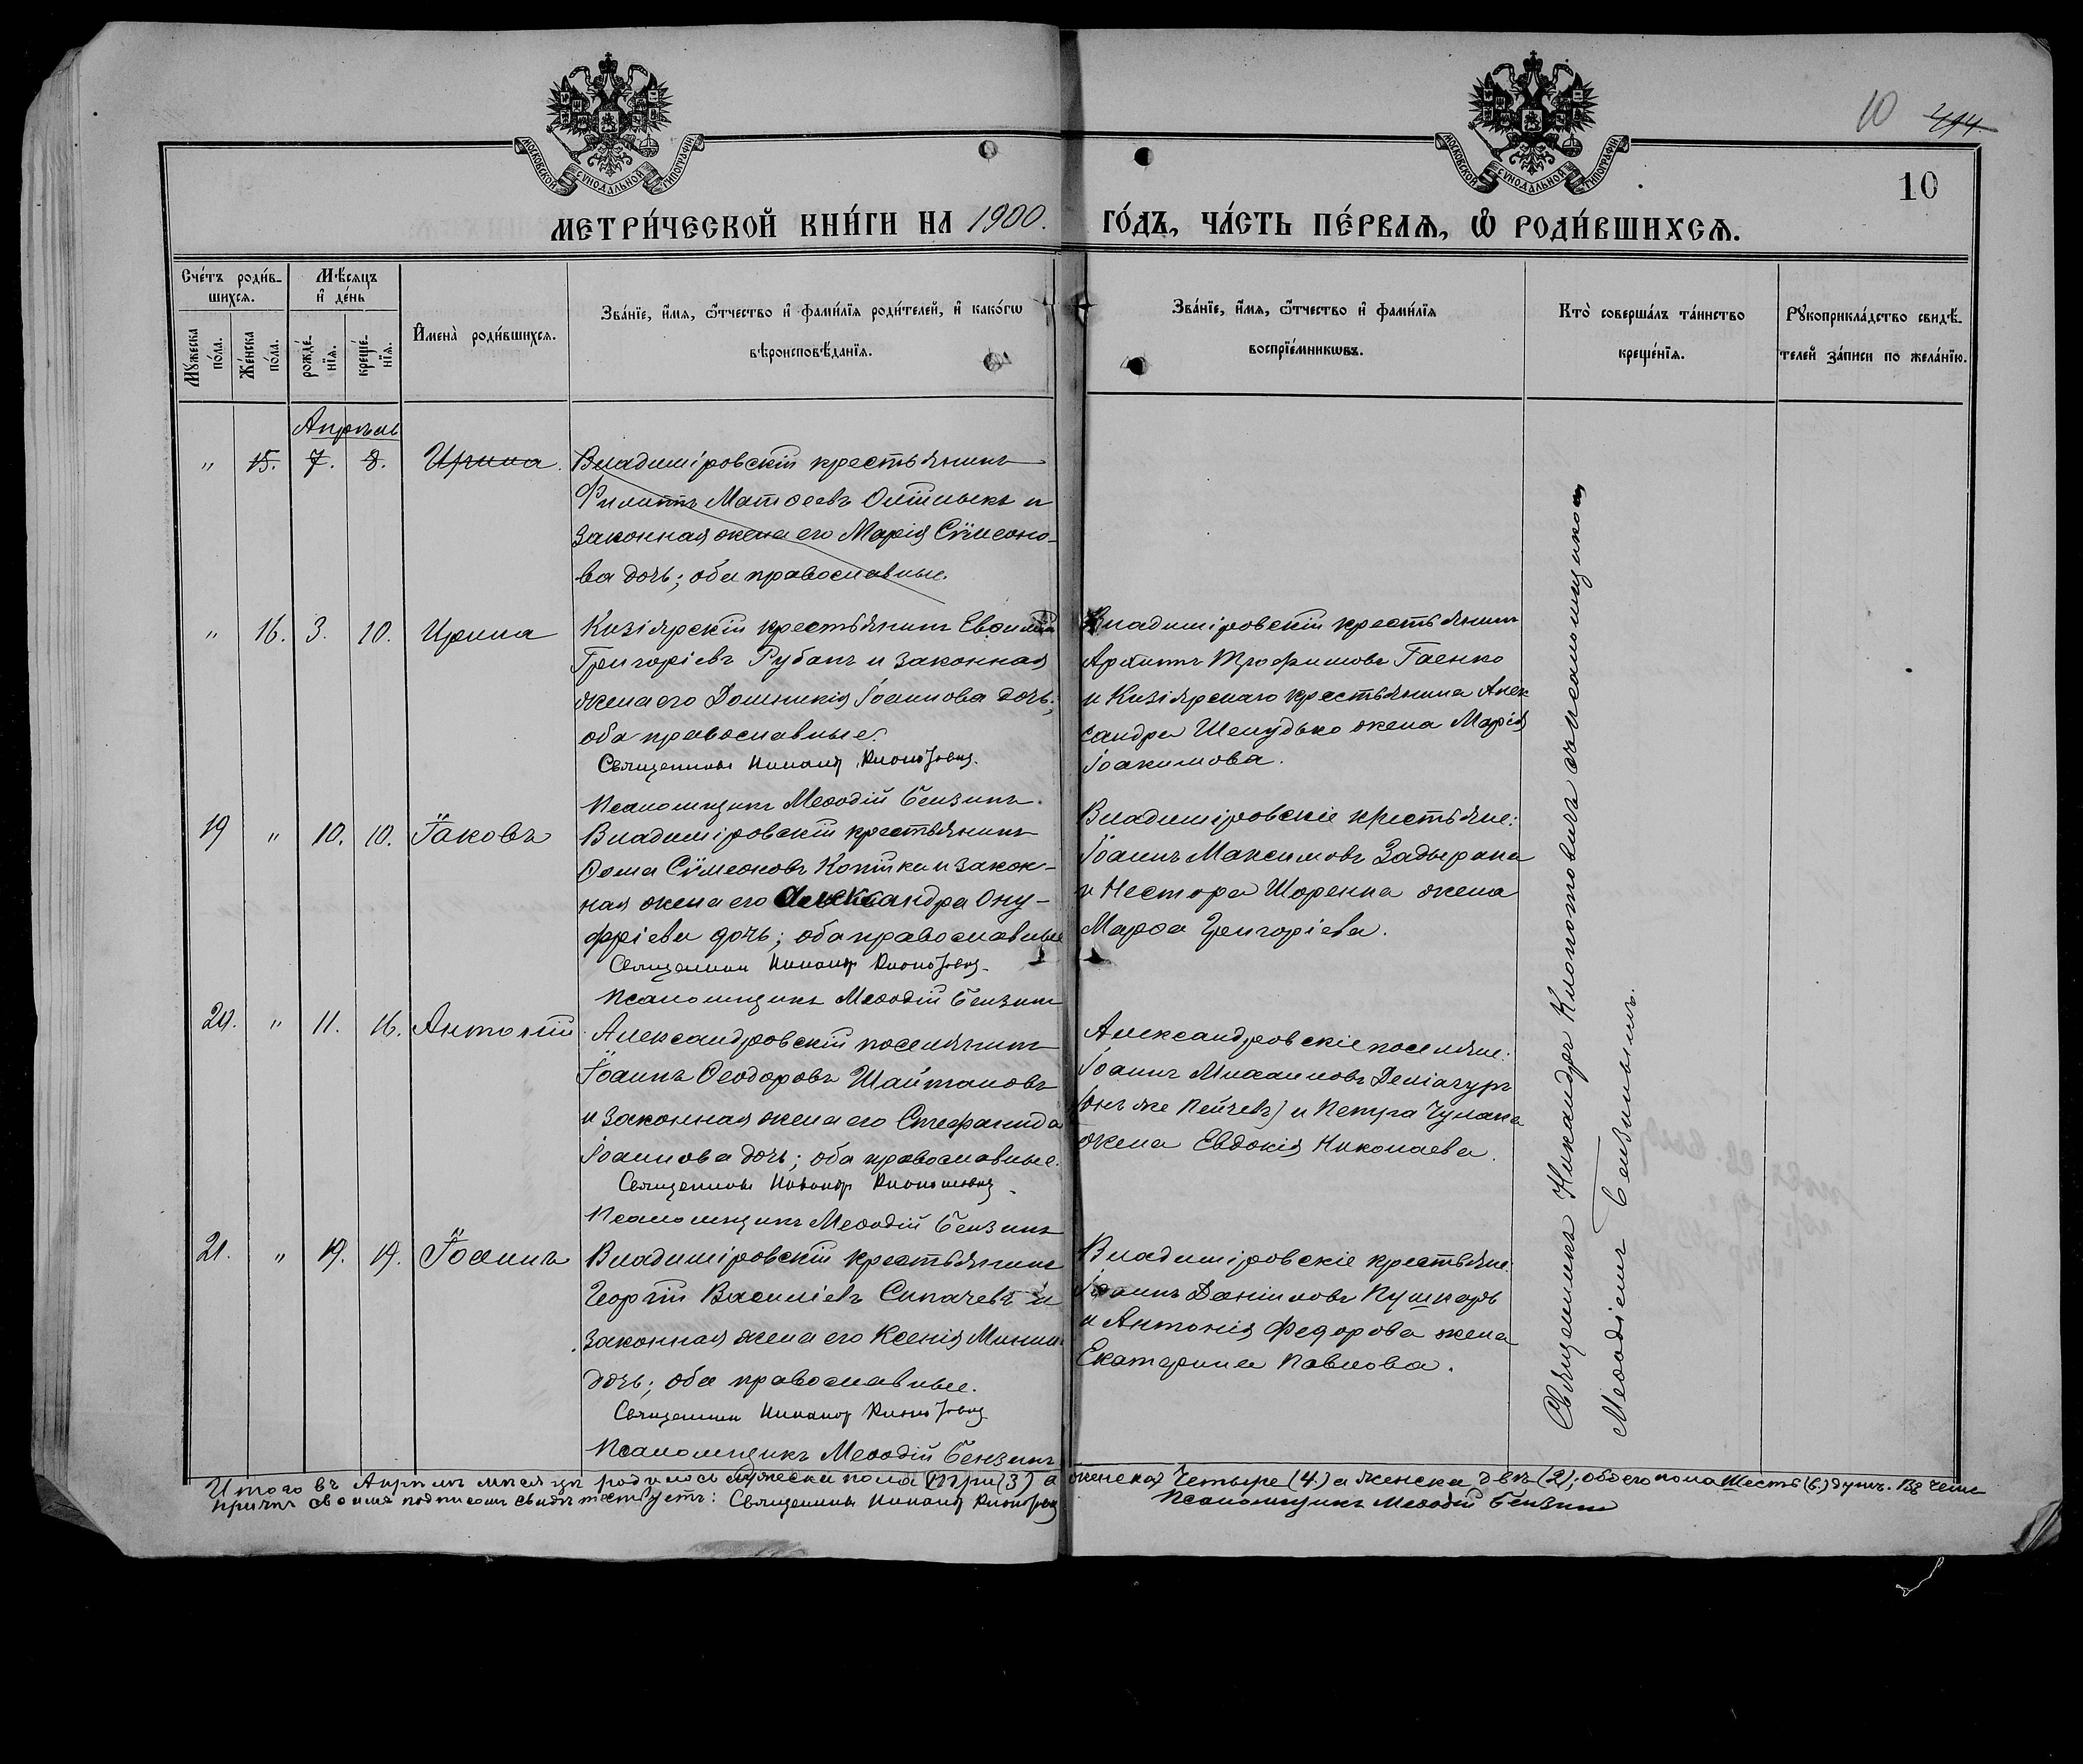 10 414.
10
МОСКОВСКОЙ СѴНОДАЛЬНОЙ ТИПОГРАФІИ
МОСКОВСКОЙ СѴНОДАЛЬНОЙ ТИПОГРАФІИ
МЕТРИ́ЧЕСКОЙ КНИ́ГИ НА 1900. ГО́ДЪ, ЧА́СТЬ ПЕ́РВАѦ, Ѽ РОДИ́ВШИХСѦ.
Сче́тъ роди́в-
шихсѧ.
Мꙋжеска по́ла.
Же́нска по́ла.
Мѣ́сѧцъ
и҆ де́нь
рожде́-
нїѧ.
креще́-
нїѧ.
И҆мена̀ роди́вшихсѧ.
Зва́нїе, и҆́мѧ, ѻ҆́тчество и҆ фами́лїѧ роди́телей, и҆ како́гѡ
вѣроисповѣ́данїѧ.
Зва́нїе, и҆́мѧ, ѻ҆́тчество и҆ фами́лїѧ
воспрїе́мникѡвъ.
Кто̀ соверша́лъ та́инство
креще́нїѧ.
Рꙋкоприкла́дство свидѣ́-
телей за́писи по жела́нїю.
Апрѣль
" 15. 7. 8. Ирина.
Владиміровскій крестьянинъ
Филиппъ Матѳеевъ и
законная жена его Марія Сѵмеоно-
ва дочь; оба православные.
" 16. 3. 10. Ирина
Кизіярскій крестьянинъ Евѳимій
Григоріевъ Рубанъ и законная
жена его Домникія Іоаннова дочь;
оба православные.
Священникъ Никандр Клопотовичъ.
Псаломщикъ Меѳодій Бензинъ.
Владиміровскій крестьянинъ
Архипъ Трофимовъ Гаенко
и Кизіярскаго крестьянина Алек
сандра Шелудько жена Марія
Іоакимова.
19 " 10. 10. Іаковъ
Владиміровскій крестьянинъ
Ѳома Сѵмеоновъ Копійка и закон-
ная жена его Александра Ону-
фріева дочь; оба православные
Священник Никандр Клопотовичъ.
Псаломщикъ Меѳодій Бензинъ
Владиміровскіе крестьяне:
Іоаннъ Максимовъ Задырака
и Нестора Шоренка жена
Марѳа Григоріева.
20. " 11. 16. Антоній
Александровскій поселянинъ
Іоаннъ Ѳеодоровъ Шайтановъ
и законная жена его Стефанида
Іоаннова дочь; оба православные.
Священникъ Никандр Клопотовичъ.
Псаломщикъ Меѳодій Бензинъ
Александровскіе поселяне:
Іоаннъ Михаиловъ
(онъ же Пейчевъ) и Петра Чумака
жена Евдокія Николаева.
21. " 19. 19. Іоаннъ
Владиміровскій крестьянинъ
Георгій Василіевъ Сипачевъ и
законная жена его Ксенія Минина
дочь; оба православные.
Священник Никандр Клопотовичъ
Псаломщикъ Меѳодій Бензинъ
Владиміровскіе крестьяне:
Іоаннъ Даніиловъ Пушкарь
и Антонія Федорова жена
Екатерина Павлова.
Священникъ Никандръ Клопотовичъ съ псаломщикомъ
Меѳодіемъ Бензинымъ.
Итого въ Апрѣлѣ мѣсяцѣ родилось мужеска пола три (3) а женска четыре (4) а женска двѣ (2); обоего пола шесть (6) душъ. Въ чемъ
причтъ своимъ подписомъ свидѣтельствуетъ: Священникъ Никандр Клопотовичъ
Псаломщикъ Меѳодій Бензинъ